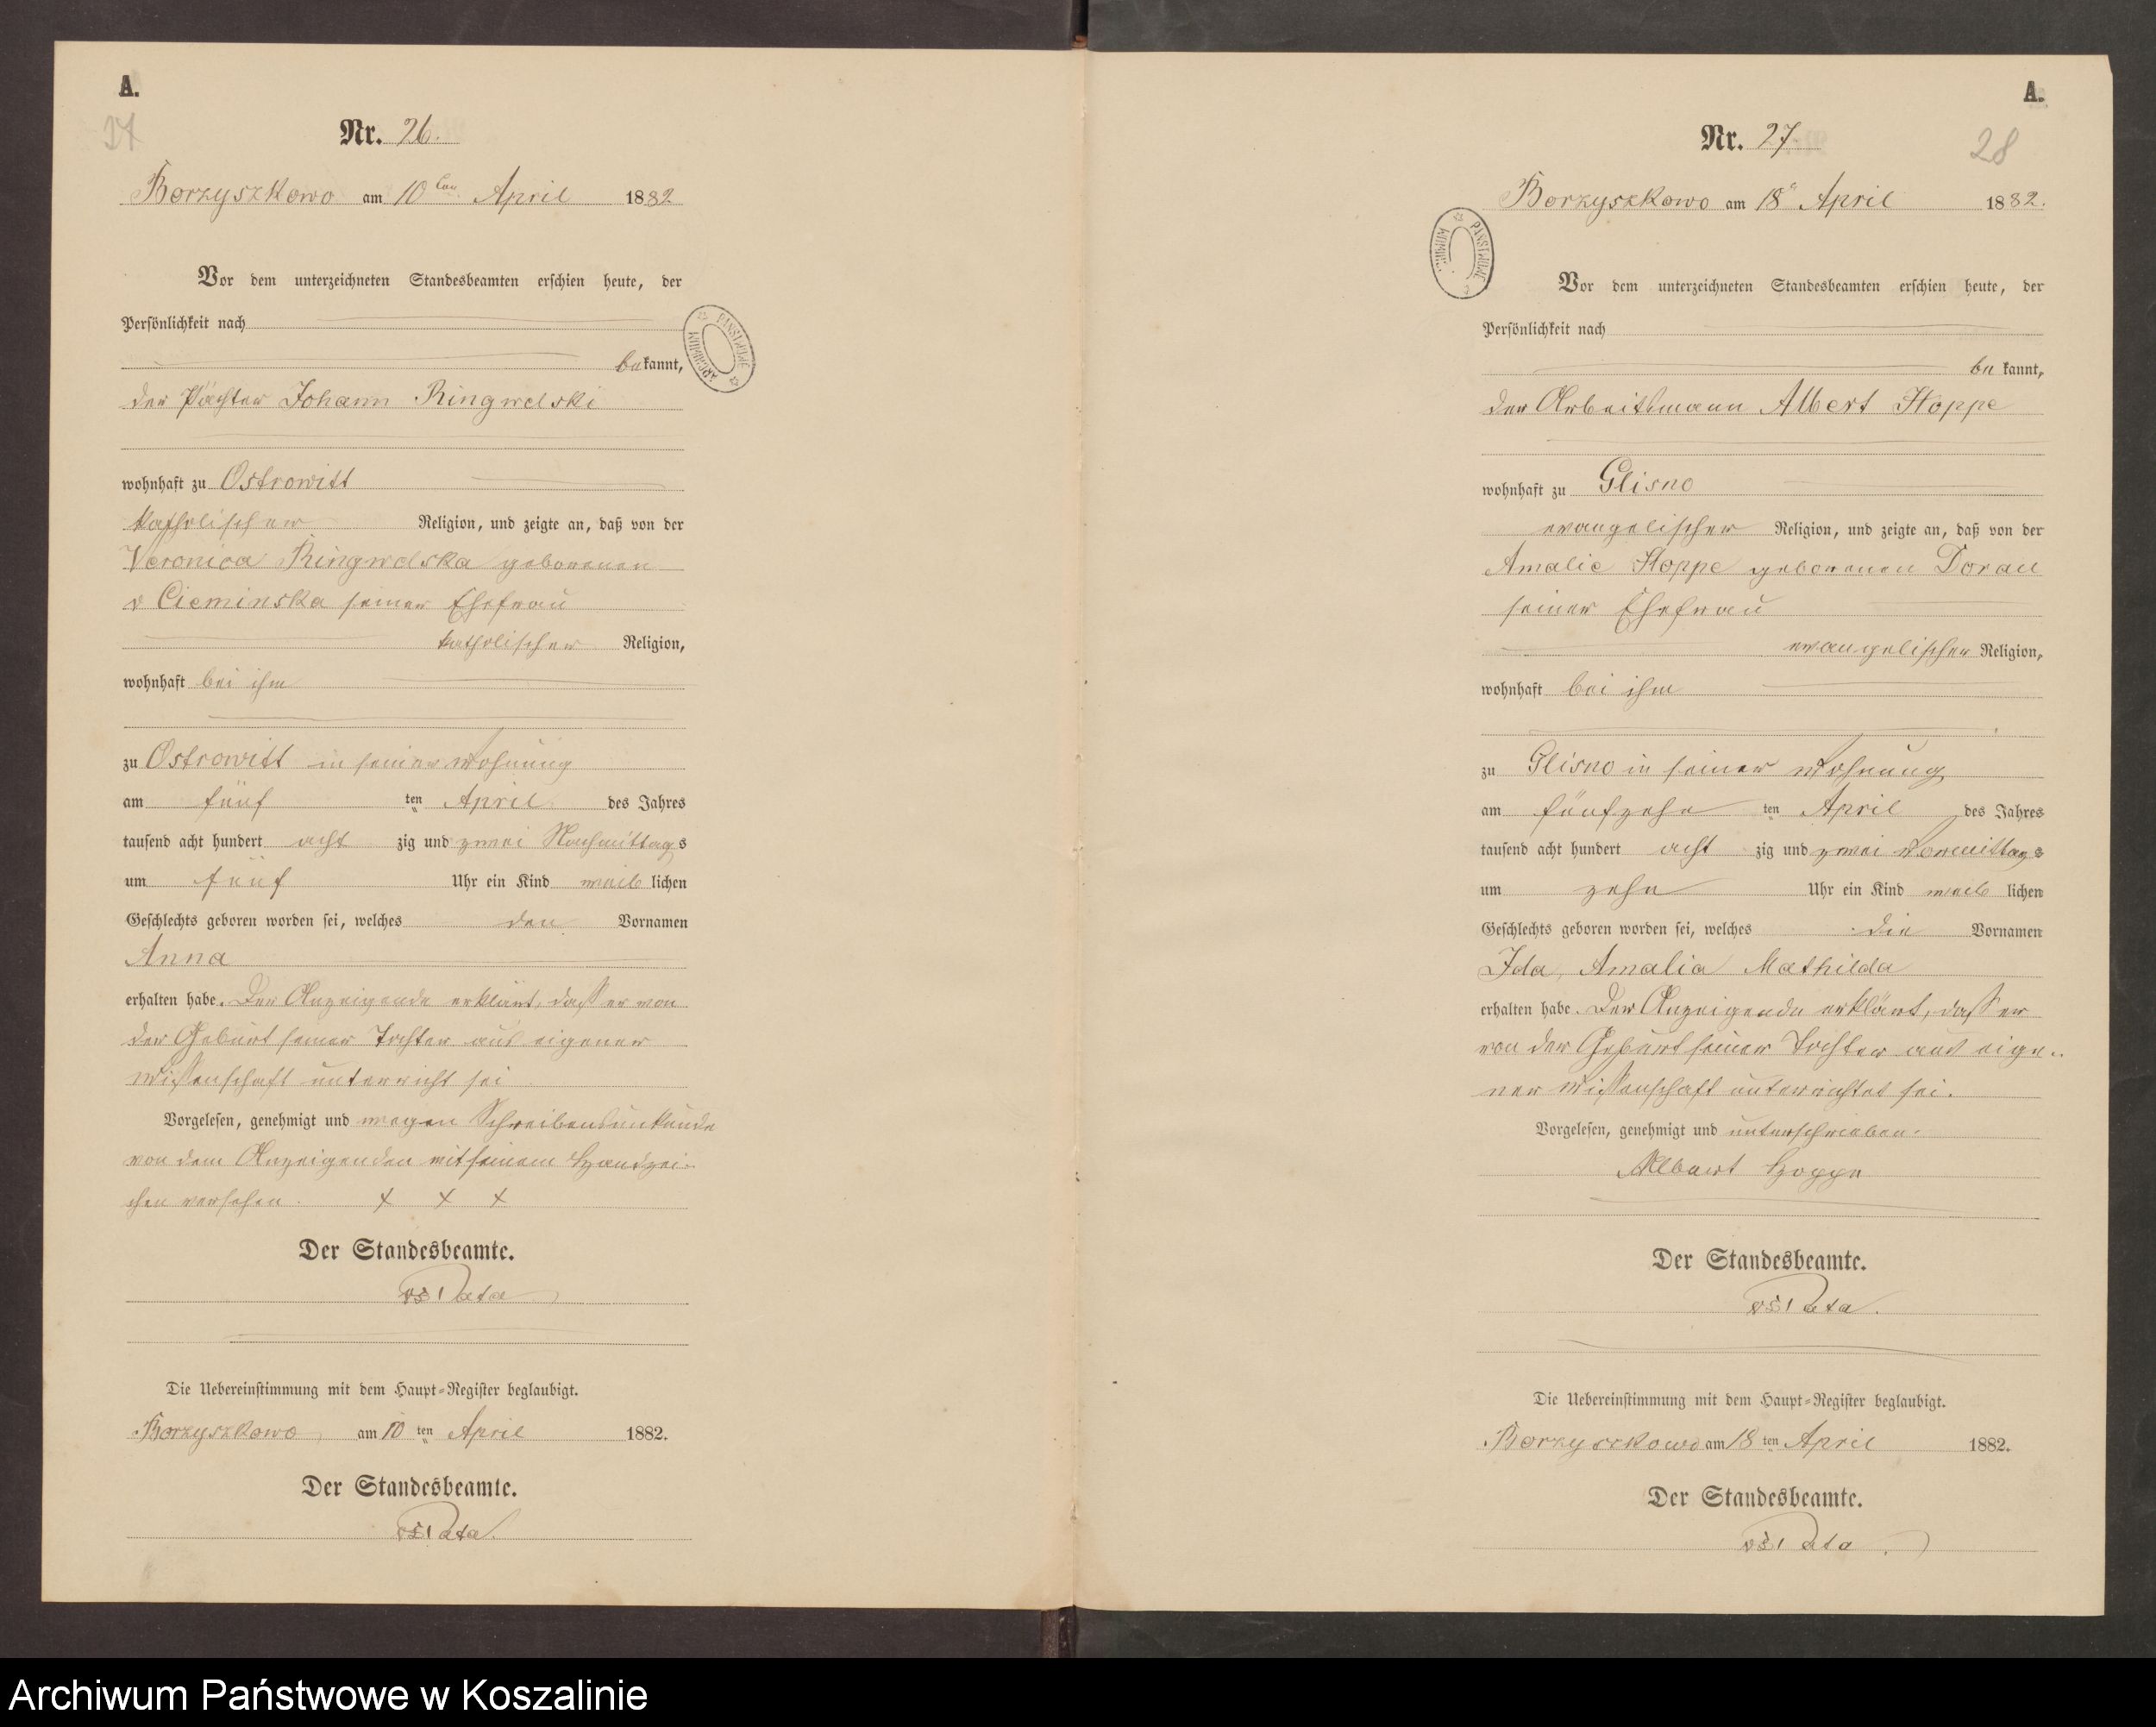 A.
27
Nr. 26.
Borzyszkowo am 10ten April 1882
Vor dem unterzeichneten Standesbeamten erschien heute, der
Persönlichkeit nach
bekannt,
der Pächter Johann Ringwelski
wohnhaft zu Ostrowitt
katholischer Religion, und zeigte an, daß von der
Veronica Ringwelska geborenen
v Cieminska seiner Ehefrau
katholischer Religion,
wohnhaft bei ihm
zu Ostrowitt in seiner Wohnung
am fünf ten April des Jahres
tausend acht hundert acht zig und zwei Nachmittags
um fünf Uhr ein Kind weiblichen
Geschlechts geboren worden sei, welches den Vornamen
Anna
erhalten habe. Der Anzeigende erklärt, daß er von
der Geburt seiner Tochter aus eigener
Wissenschaft unterricht sei
Vorgelesen, genehmigt und wegen Schreibensunkunde
von dem Anzeigenden mit seinem Handzei-
chen versehen. x x x
Der Standesbeamte.
Pata
Die Uebereinstimmung mit dem Haupt-Register beglaubigt.
Borzyszkowo am 10 ten April 1882.
Der Standesbeamte.
Pata.
A.
28
Nr. 27
Borzyszkowo am 18 April 1882.
Vor dem unterzeichneten Standesbeamten erschien heute, der
Persönlichkeit nach
bekannt,
der Arbeitsmann Albert Hoppe
wohnhaft zu Glisno
evangelischer Religion, und zeigte an, daß von der
Amalie Hoppe geborenen Dorau
seiner Ehefrau
evangelischer Religion,
wohnhaft bei ihm
zu Glisno in seiner Wohnung
am fünfzehn ten April des Jahres
tausend acht hundert acht zig und zwei Vormittags
um zehn Uhr ein Kind weiblichen
Geschlechts geboren worden sei, welches die Vornamen
Ida, Amalia Mathilda
erhalten habe. Der Anzeigende erklärt, daß er
von der Geburt seiner Tochter aus eige-
ner Wissenschaft unterrichtet sei.
Vorgelesen, genehmigt und unterschrieben.
Albert Hoppe
Der Standesbeamte.
Pata.
Die Uebereinstimmung mit dem Haupt-Register beglaubigt.
Borzyszkowo am 18 ten April 1882.
Der Standesbeamte.
Pata.
ARCHIWUM PAŃSTWOWE
Archiwum Państwowe w Koszalinie